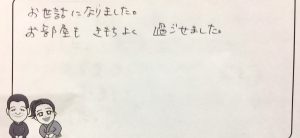 お世話になりました。
お部屋も きもちよく 過ごせました。